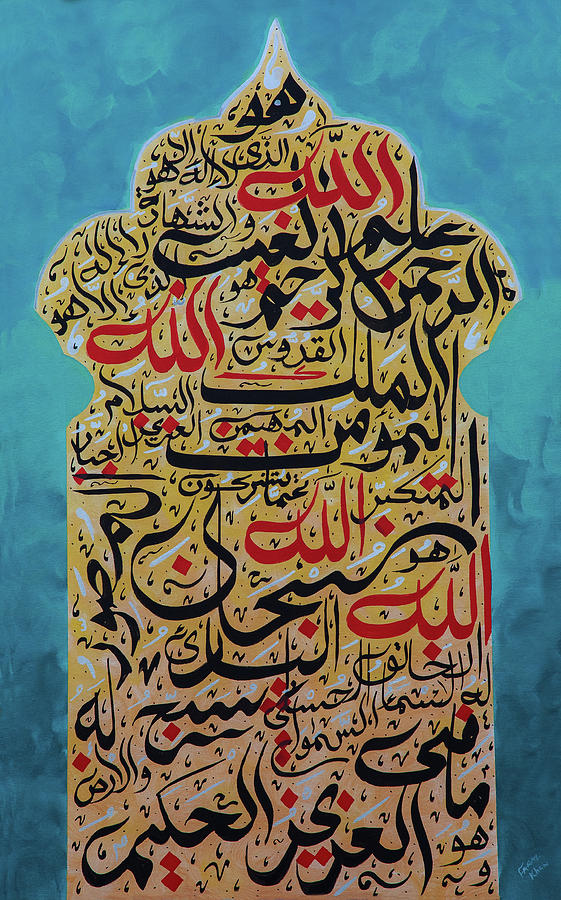 هو الله الذي لا اله الا هو
علم الغيب والشهادة
هو الرحمن الرحيم
هو الله الذي لا اله الا هو
الملك القدوس السلام
المؤمن المهيمن العزيز الجبار
المتكبر سبحان الله عما يشركون
هو الله الخالق البارئ المصور
له الاسماء الحسنى
يسبح له ما في السموات والارض
وهو العزيز الحكيم
FARAZ KHAN